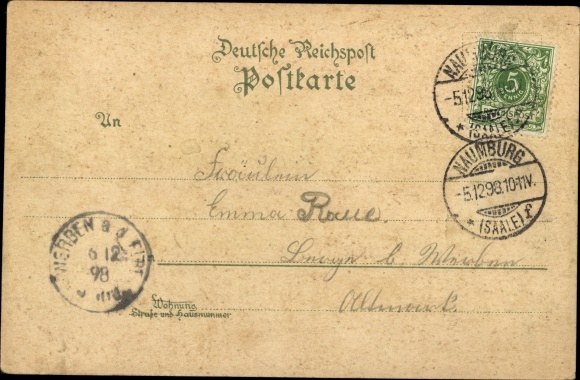 Deutsche Reichspost
Postkarte
NAUMBURG
5
-5.12.98
* (SAALE)
An
NAUMBURG
-5.12.98.10-11V.
* (SAALE) f
Fräulein
Emma Raue.
Berge b. Werben
Altmark.
WERBEN a. d. ELBE
6 12
98
Wohnung
Straße und Hausnummer